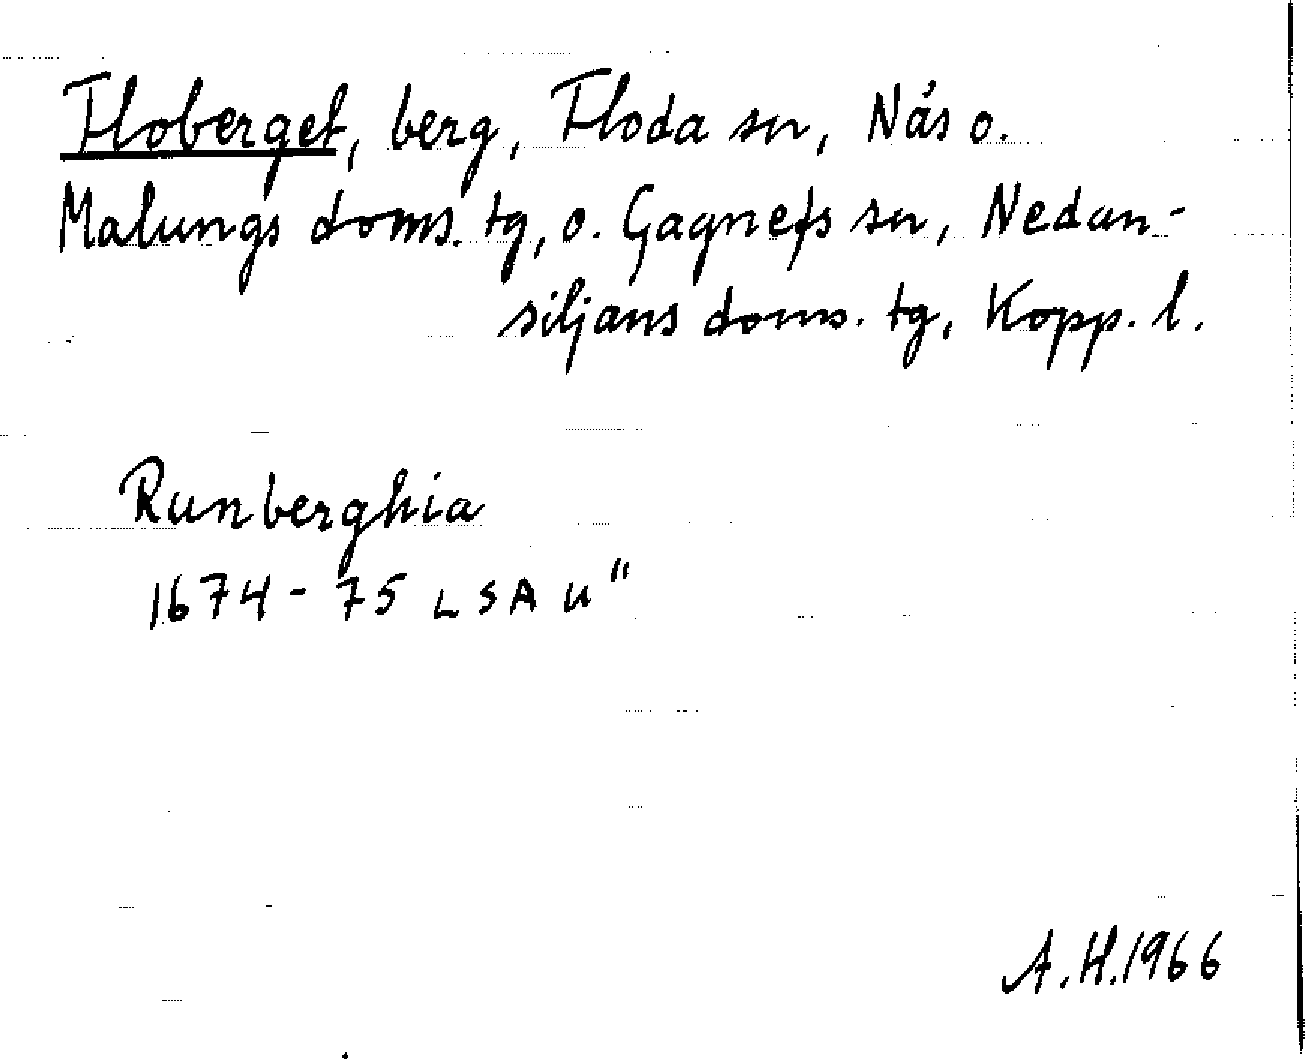 Floberget, berg, Floda sn, Näs o.
Malungs doms. tg, o. Gagnefs sn, Nedan-
siljans doms. tg, Kopp. l.
Runberghia
1674-75 LSA U"
A.H.1966